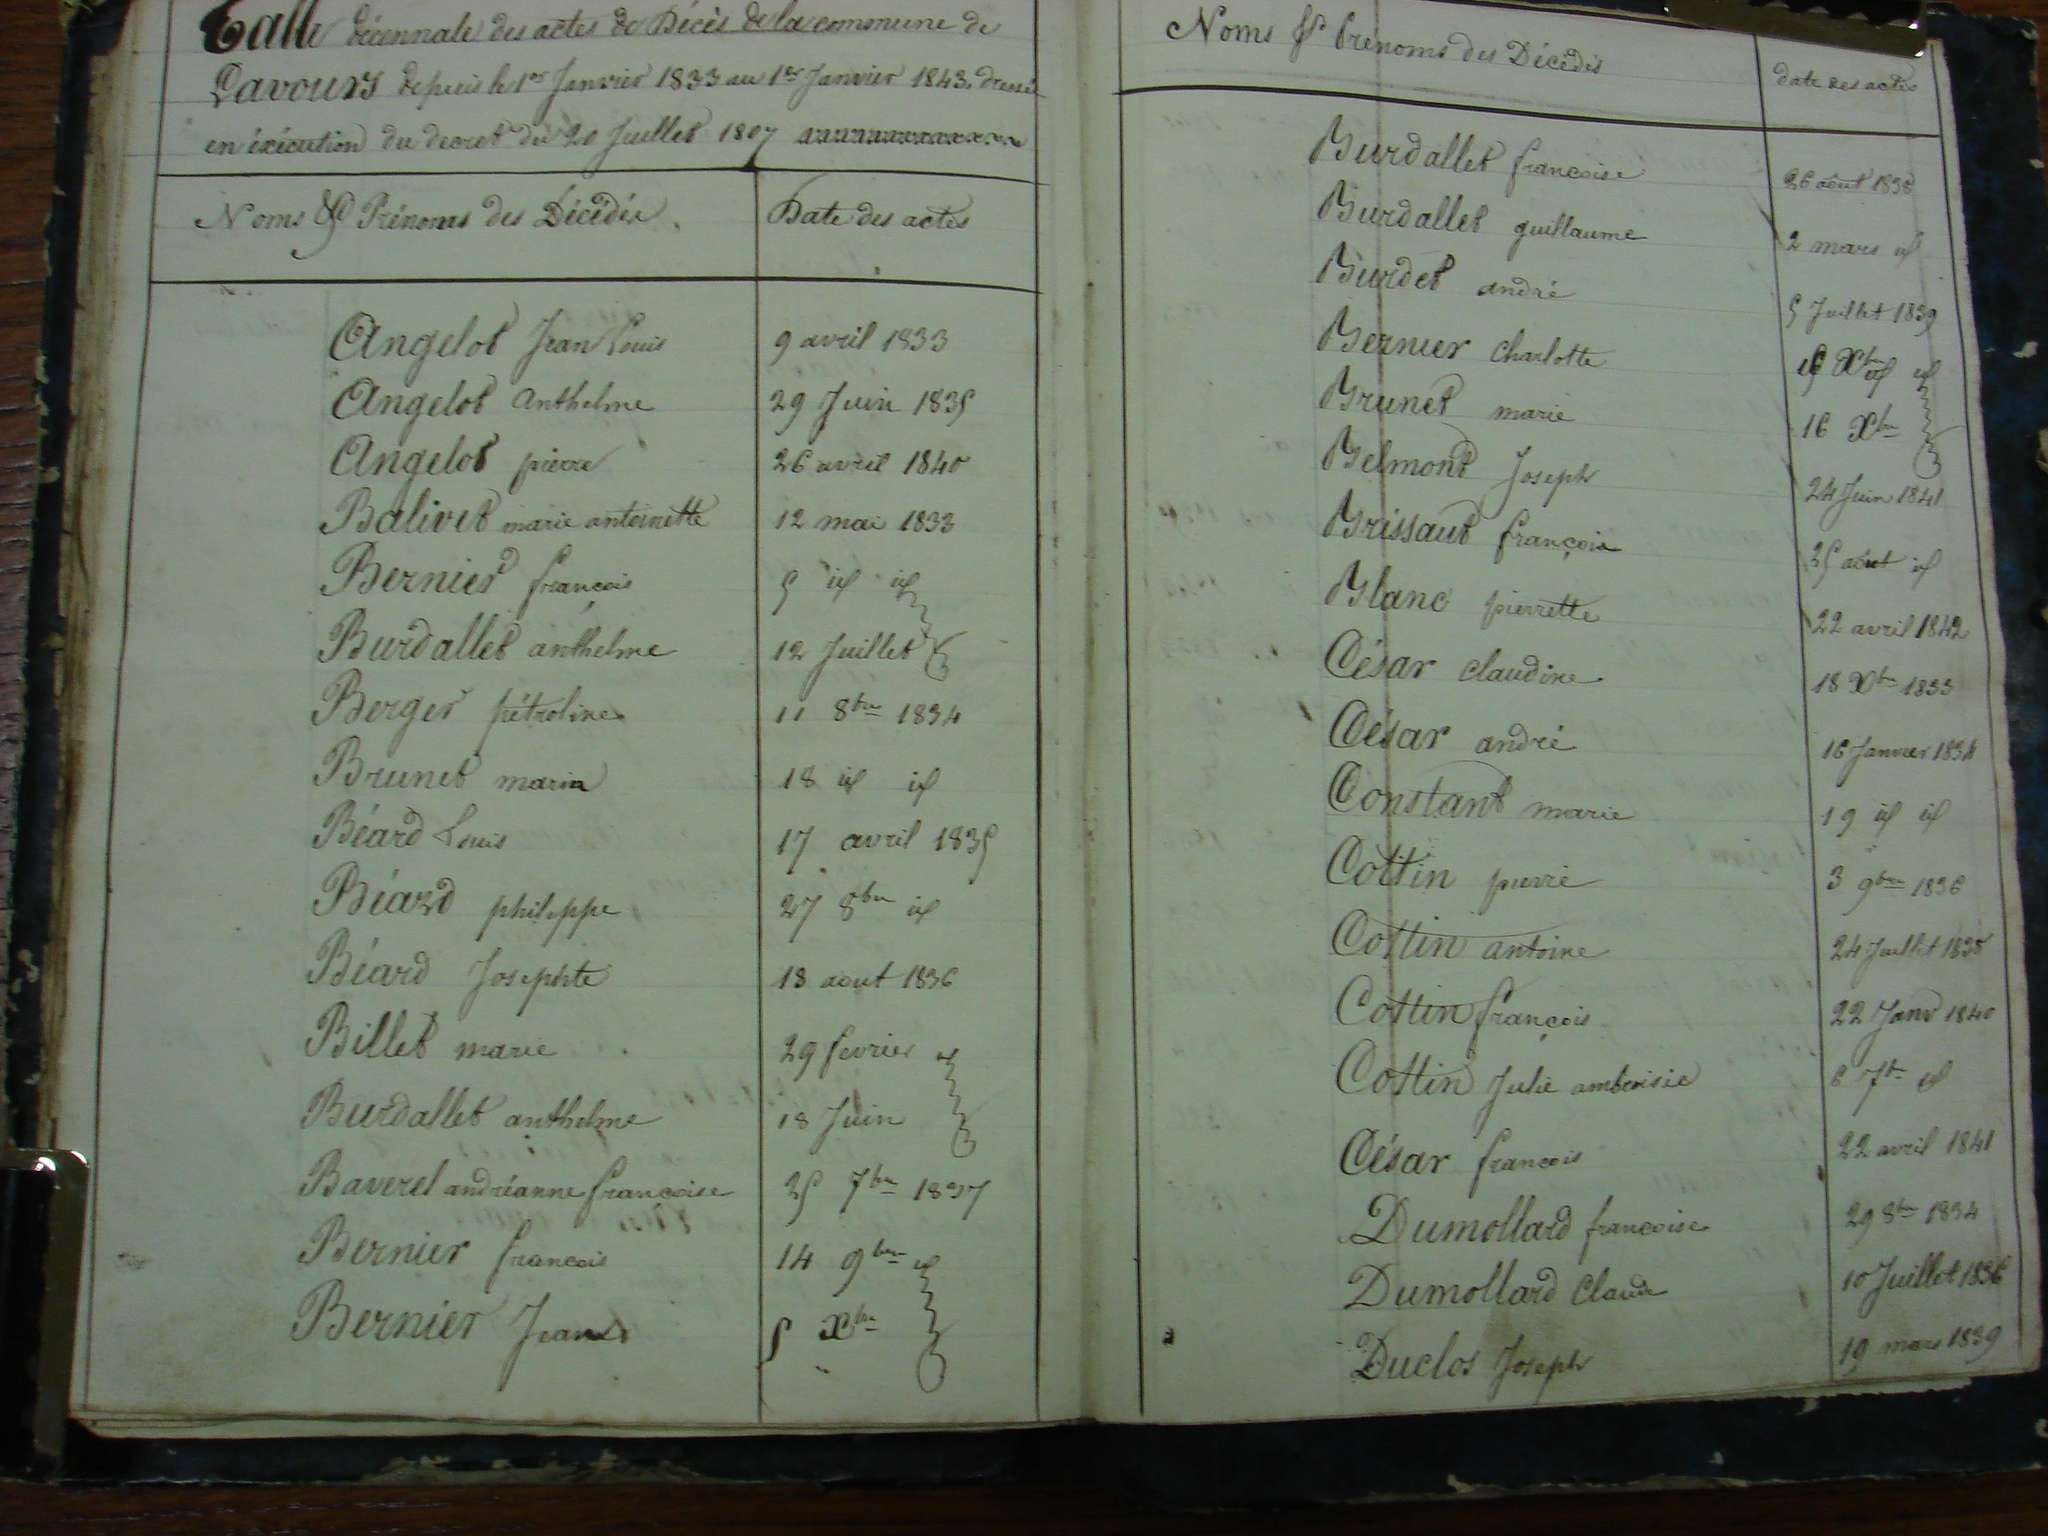 Table décennale des actes de Décès de la commune de
Lavours depuis le 1er Janvier 1833 au 1er Janvier 1843, dressé
en éxécution du decret du 20 Juillet 1807
Noms & Prénoms des Décédés. Date des actes
Angelot Jean Louis 9 avril 1833
Angelot Anthelme 29 Juin 1835
Angelot pierre 26 avril 1840
Balivet marie antoinette 12 mai 1833
Bernier françois 5 id id
Burdallet anthelme 12 Juillet
Berger pétroline 11 8bre 1834
Brunet maria 18 id id
Béard Louis 17 avril 1835
Béard philippe 27 8bre id
Béard Josephte 18 aout 1836
Billet marie 29 fevrier id
Burdallet anthelme 18 Juin
Baverel andréanne françoise 25 7bre 1837
Bernier françois 14 9bre id
Bernier Jean 5 Xbre
Noms & Prénoms des Décédés date des actes
Burdallet françoise 26 août 1838
Burdallet guillaume 2 mars id
Burdet andré 5 Juillet 1839
Bernier charlotte Xbre id
Brunet marie 16 Xbre
Belmont Joseph 24 Juin 1841
Brissaut françois 25 août id
Blanc pierrette 22 avril 1842
César claudine 18 Xbre 1833
César andré 16 Janvier 1834
Constant marie 19 id id
Cottin pierre 3 9bre 1836
Cottin antoine 24 Juillet 1838
Cottin françois 22 Janv 1840
Cottin Julie ambroisie 6 7bre id
César françois 22 avril 1841
Dumollard françoise 29 8bre 1834
Dumollard Claude 10 Juillet 1836
Duclos Joseph 19 mars 1839